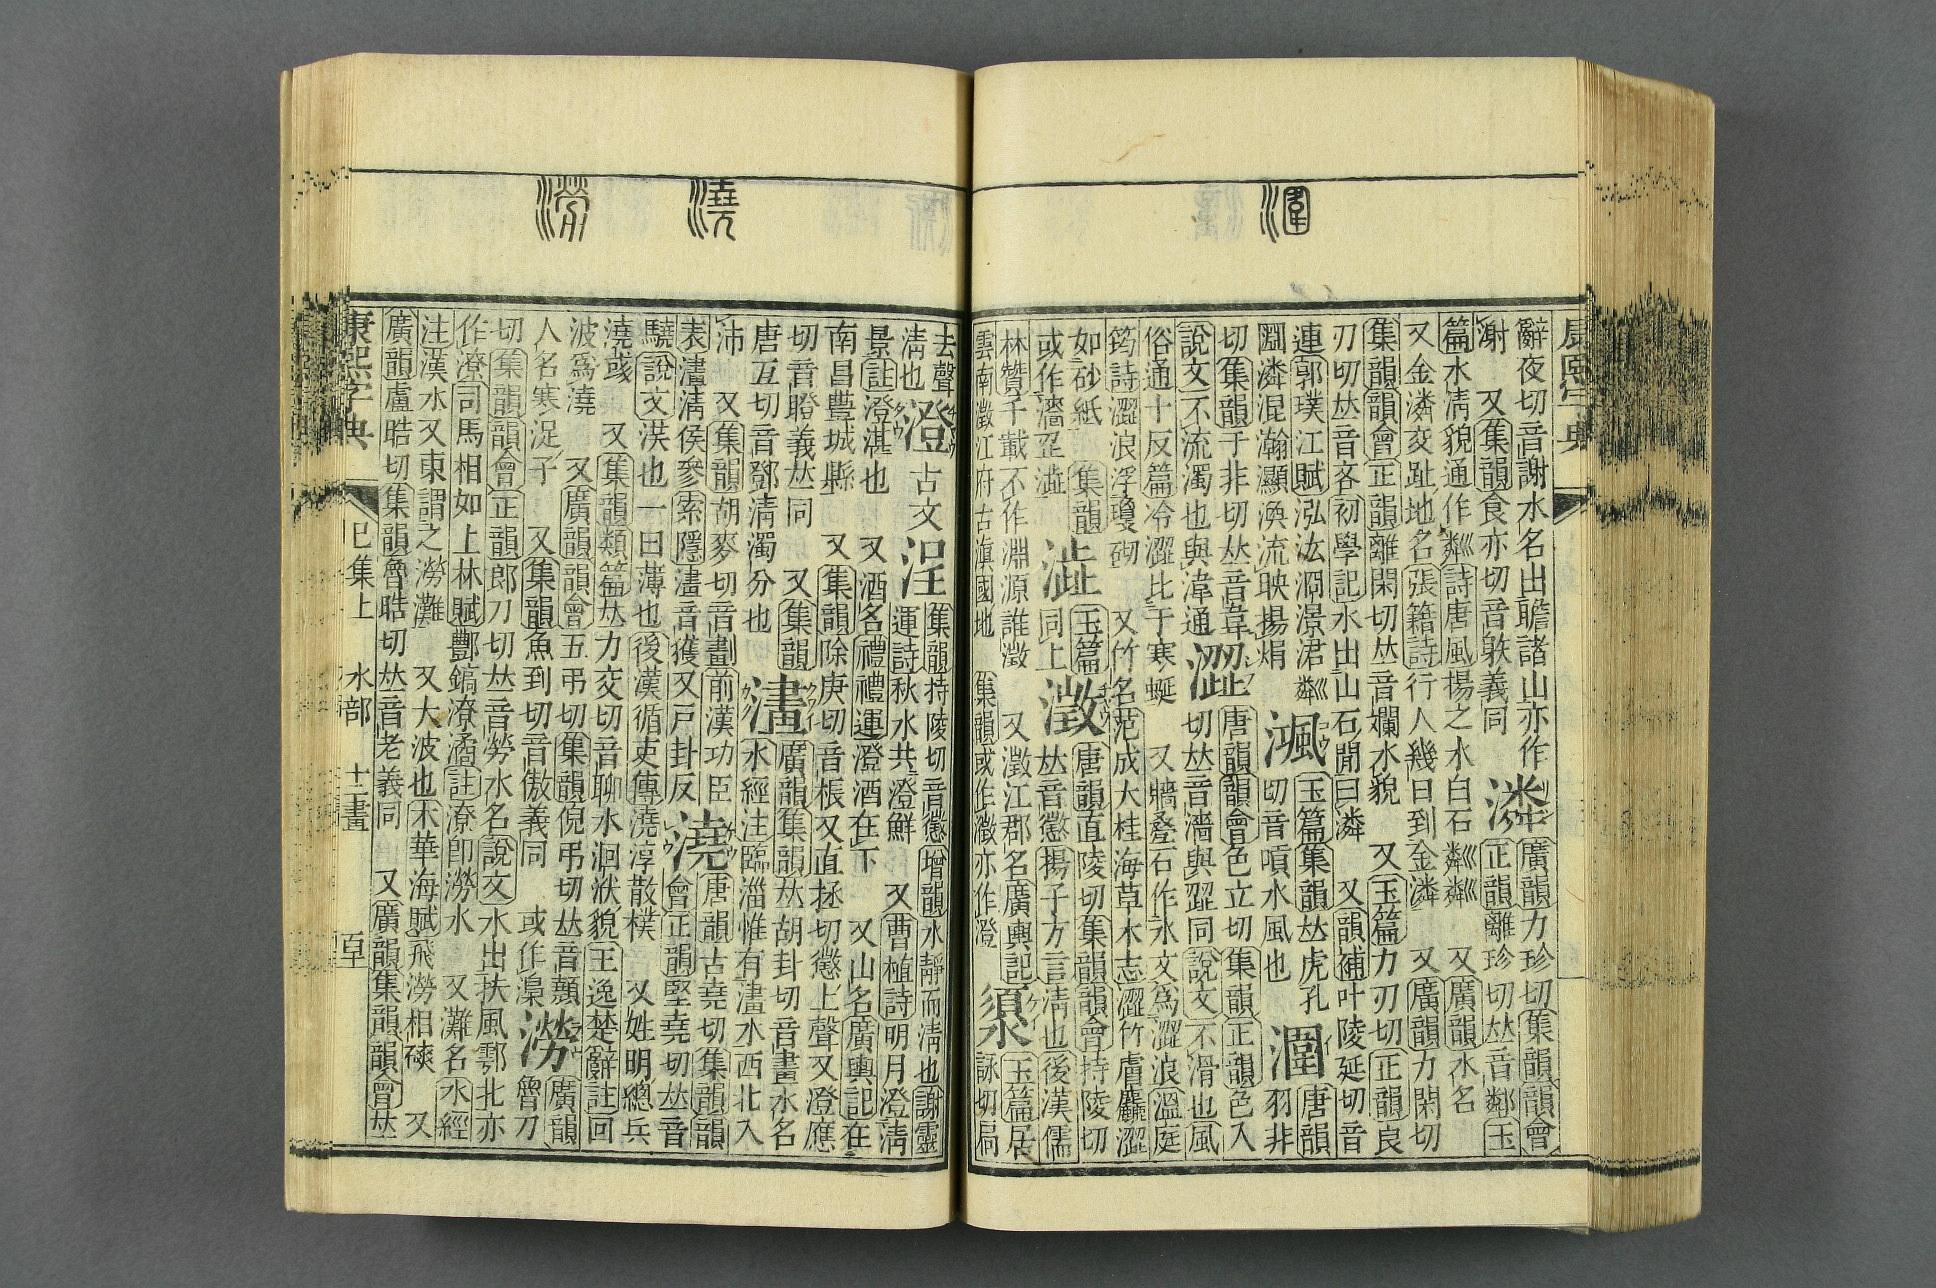 潿
康熙字典
辭夜切音謝水名出瞻諸山亦作 潾 廣韻力珍切集韻韻會
謝 又集韻食亦切音䠶義同 正韻離珍切𠀤音鄰玉
篇水淸貌通作粼詩唐風揚之水白石粼粼 又廣韻水名
又金潾交趾地名張籍詩行人幾日到金潾 又廣韻力閑切
集韻韻會正韻離閑切𠀤音斕水貌 又玉篇力刃切正韻良
刃切𠀤音吝初學記水出山石閒曰潾 又韻補叶陵延切音
連郭璞江賦泓汯浻澋涒粼 渢 玉篇集韻𠀤虎孔 潿 唐韻
潾混瀚灦渙流映揚焆 切音嗊水風也 羽非
切集韻于非切𠀤音韋 澀 唐韻韻會色立切集韻正韻色入
說文不流濁也與湋通 切𠀤音濇與歰同說文不滑也風
俗通十反篇冷澀比于寒蜒 又牆疊石作水文爲澀浪溫庭
筠詩澀浪浮瓊砌 又竹名范成大桂海草木志澀竹膚麤澀
如砂紙 集韻 澁 玉篇 澂 唐韻直陵切集韻韻會持陵切
或作濇歰澁 同上 𠀤音懲揚子方言淸也後漢儒
林贊千載不作淵源誰澂 又澂江郡名廣輿記 玉篇居
雲南澂江府古滇國地 集韻或作瀓亦作澄 詠切
澆
澇
去聲 澄 古文 浧 集韻持陵切音懲增韻水靜而淸也謝靈
淸也 運詩秋水共澄鮮 又曹植詩明月澄淸
景註澄湛也 又酒名禮禮運澄酒在下 又山名廣輿記在
南昌豐城縣 又集韻除庚切音棖又直拯切懲上聲又澄應
切音瞪義𠀤同 又集韻 澅 廣韻集韻𠀤胡卦切音畫水名
唐亙切音鄧淸濁分也 水經注臨淄惟有澅水西北入
沛 又集韻胡麥切音劃前漢功臣 澆 唐韻古堯切集韻韻
表澅淸侯參索隱澅音獲又戸卦反 會正韻堅堯切𠀤音
驍說文渓也一曰薄也後漢循吏傳澆淳散樸 又姓明總兵
澆彧 又集韻類篇𠀤力交切音聊水洄洑貌王逸楚辭註回
波爲澆 又廣韻韻會五弔切集韻倪弔切𠀤音顤 澇 廣韻
人名寒浞子 又集韻魚到切音傲義同 或作 魯刀
切集韻韻會正韻郎刀切𠀤音勞水名說文水出扶風鄠北亦
作潦司馬相如上林賦酆鎬潦潏註潦卽澇水 又灘名水經
注漢水又東謂之澇灘 又大波也木華海賦飛澇相磢 又
廣韻盧晧切集韻韻會晧切𠀤音老義同 又廣韻集韻韻會𠀤
康熙字典 巳集上 水部 十二畫